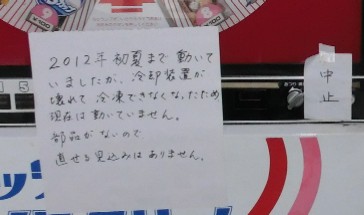 9
¥100
¥100
2012年初夏まで動いて
いましたが、冷却装置が
壊れて冷凍できなくなったため
現在は動いていません。
部品がないので
直せる見込みはありません。
中
止
5
ッ